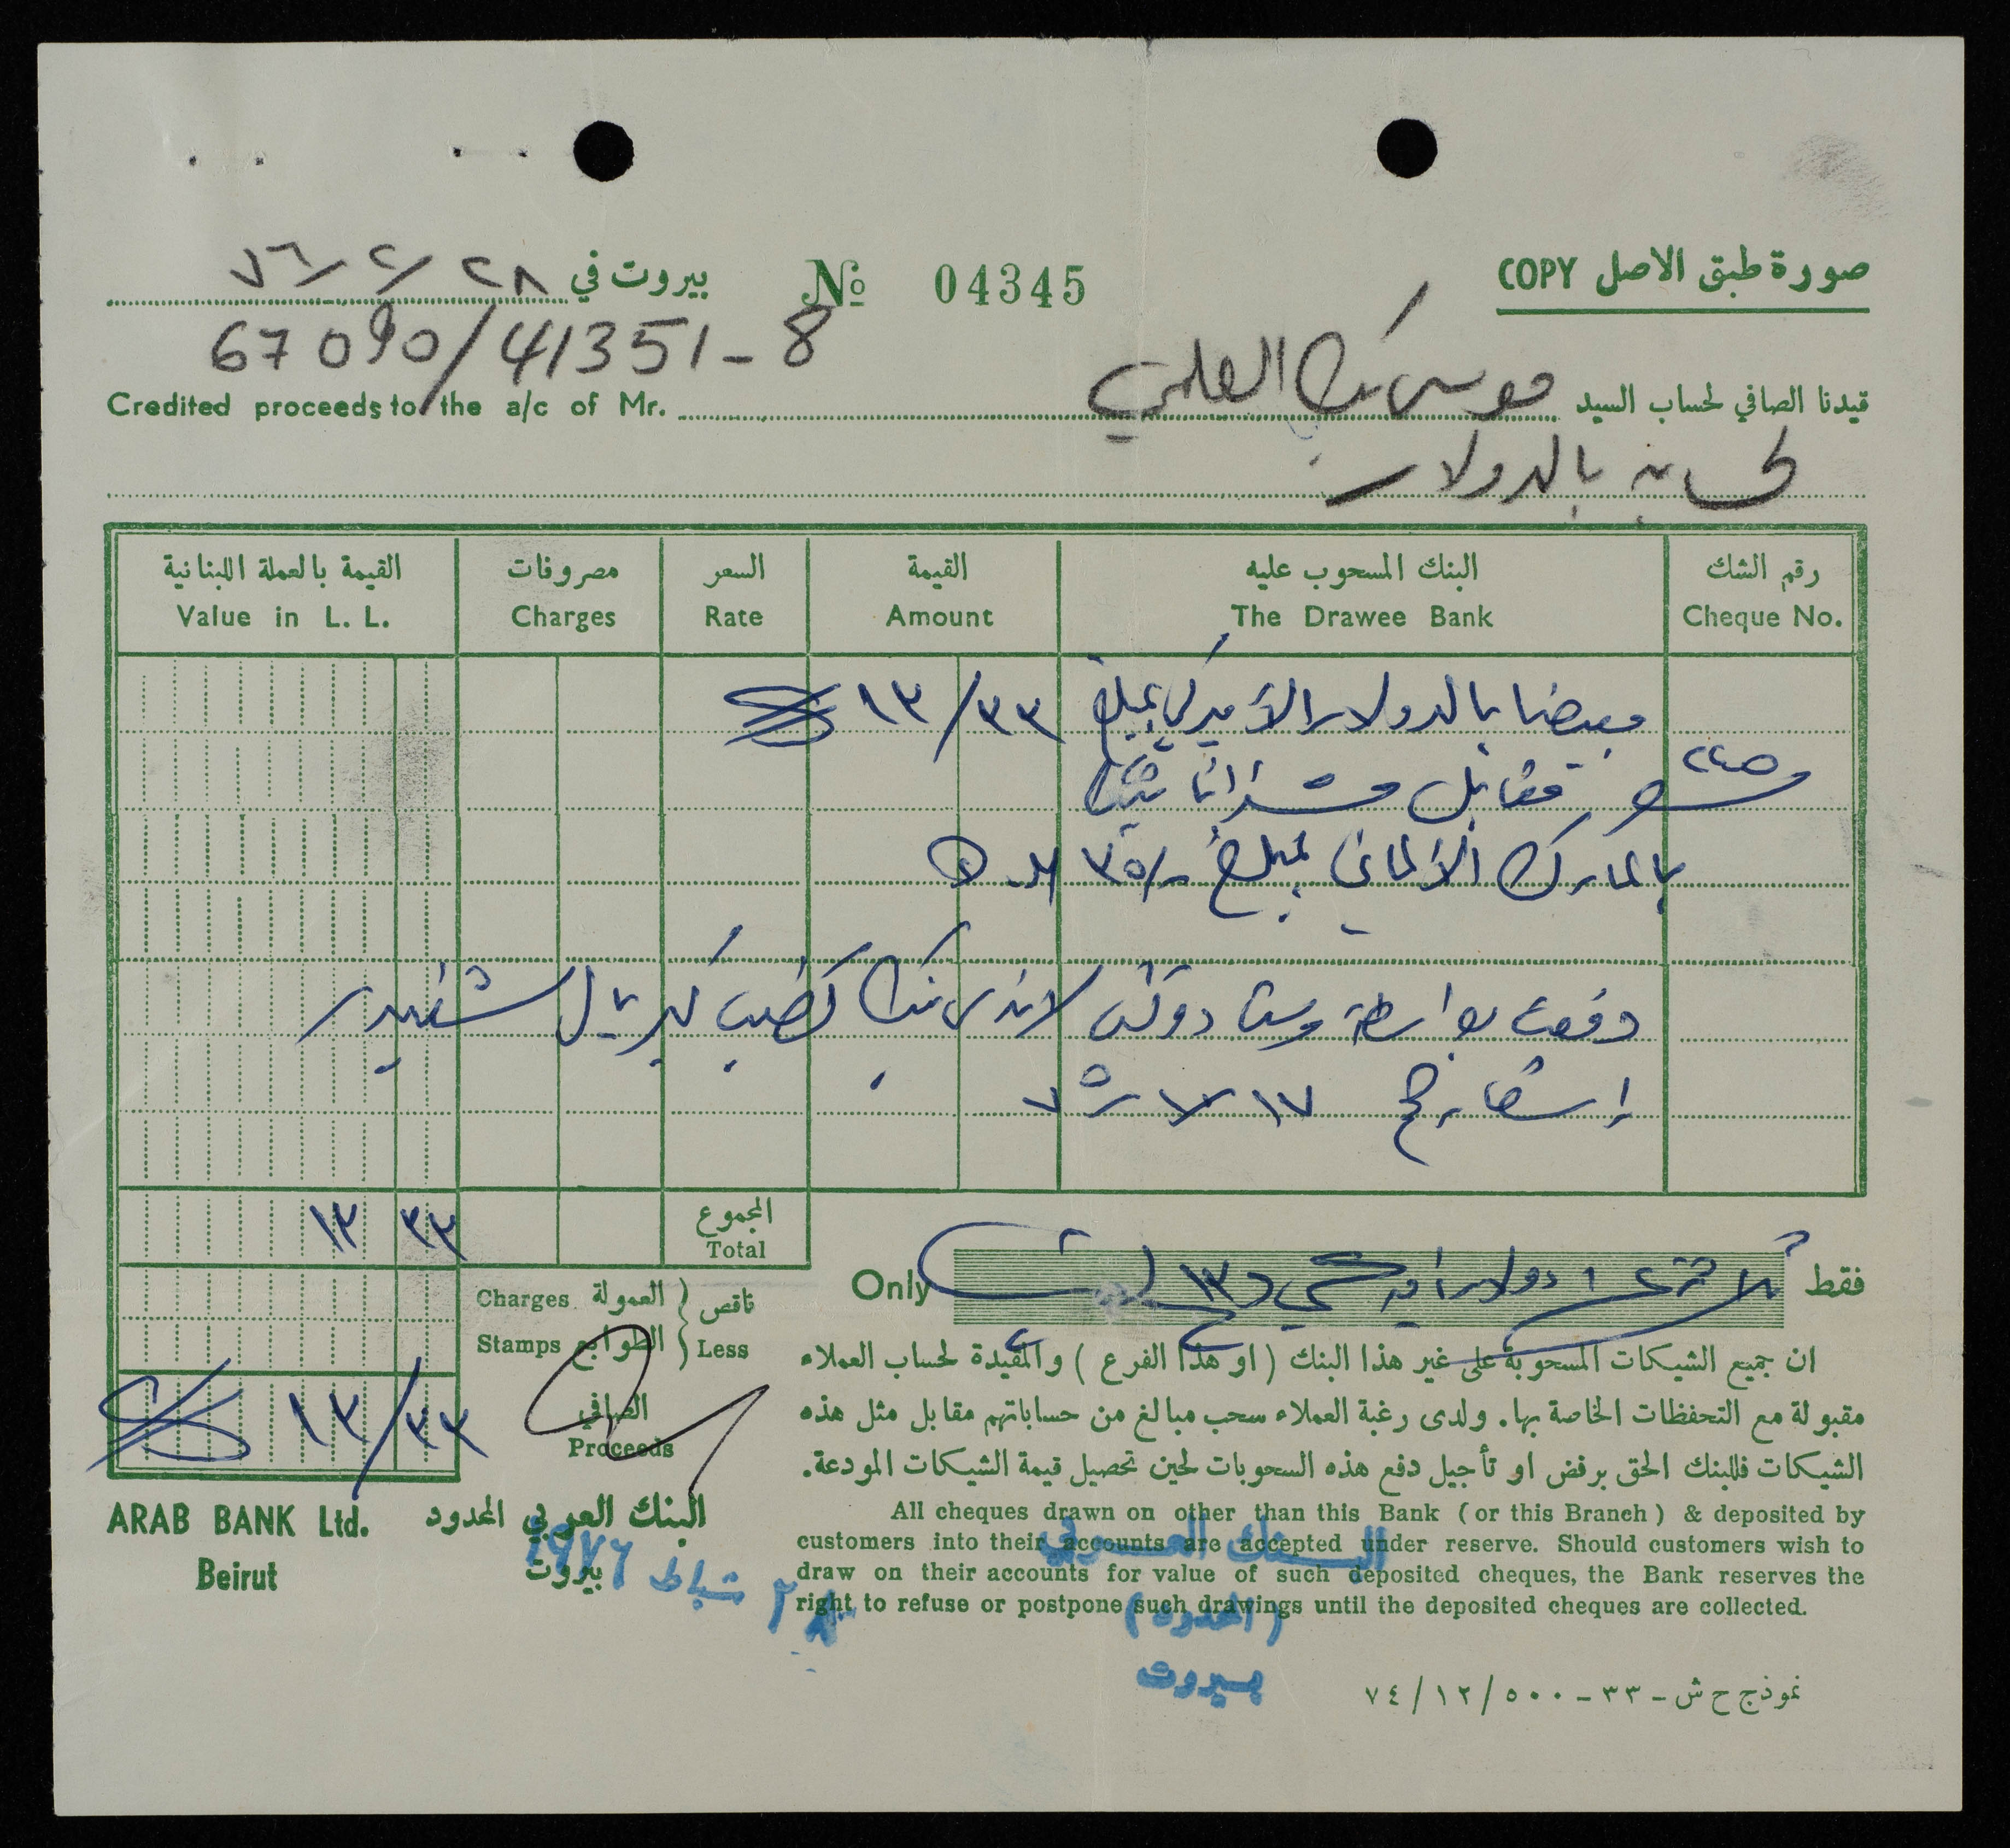 صورة طبق الاصل COPY
№ 04345
بيروت في ٢٨/٢/٧٦
67090/41351-8
قيدنا الصافي لحساب السيد موسى بك العلمي
Credited proceeds to the a/c of Mr.
لحسابه بالدولار
رقم الشك البنك المسحوب عليه القيمة السعر مصروفات القيمة بالعملة اللبنانية
Cheque No. The Drawee Bank Amount Rate Charges Value in L. L.
بالدولار الأميركي بمبلغ ١٣/٣٣ $
مقابل
بالمارك الألماني بمبلغ
دفعت بواسطة وست دوتش لاندس بنك
١٧
المجموع
Total
١٣ ٣٣
فقط دولار أميركي و
Only
ناقص العمولة
Charges
الطوابع
Less Stamps
الصافي
Proceeds
١٣/٣٣ $
ان جميع الشيكات المسحوبة على غير هذا البنك ( او هذا الفرع ) والمقيدة لحساب العملاء
مقبولة مع التحفظات الخاصة بها. ولدى رغبة العملاء سحب مبالغ من حساباتهم مقابل مثل هذه
الشيكات فللبنك الحق برفض او تأجيل دفع هذه السحوبات لحين تحصيل قيمة الشيكات المودعة.
All cheques drawn on other than this Bank ( or this Branch ) & deposited by
customers into their accounts are accepted under reserve. Should customers wish to
draw on their accounts for value of such deposited cheques, the Bank reserves the
right to refuse or postpone such drawings until the deposited cheques are collected.
ARAB BANK Ltd. البنك العربي المحدود
Beirut بيروت
٢٨ شباط ١٩٧٦
البنك العربي
(المحدود)
بيروت
نموذج ح ش - ٣٣ - ٥٠٠ / ١٢ / ٧٤